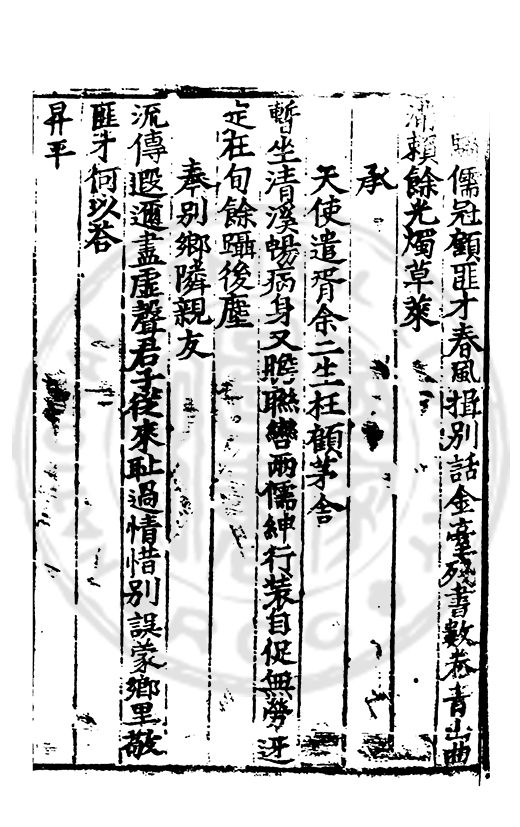 儒冠顧匪才春風揖別話金臺殘書數卷青山曲
賴餘光燭草萊
承
天使遣胥余二生枉顧茅舍
暫坐清溪暢病身又瞻聯轡兩儒紳行裝自促無勞迓
定在句餘躡後塵
奉別鄉隣親友
流傳遐邇盡虛聲君子從來耻過情惜別誤蒙鄉里敬
匪才何以答
昇平